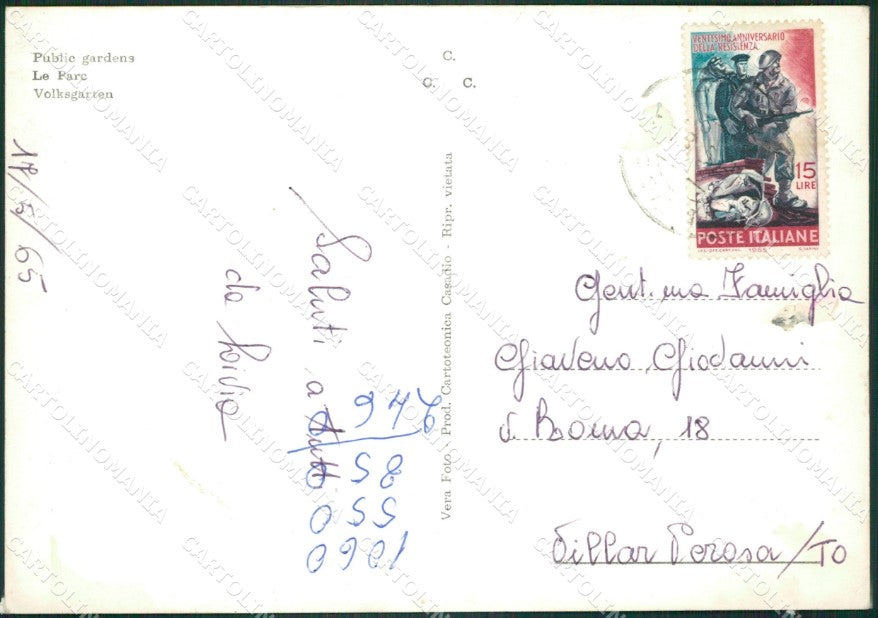 Public gardens
Le Parc
Volksgarten
C.
C. C.
VENTESIMO ANNIVERSARIO
DELLA RESISTENZA
15
LIRE
POSTE ITALIANE
1965
17/5/65
Saluti a tutti
da Livia
Vera Foto - Prod. Cartotecnica Casadio - Ripr. vietata
Gent.ma Famiglia
Giaveno Giovanni
v. Roma, 18
Villar Perosa/TO
1060
550
85
CARTOLINOMANIA